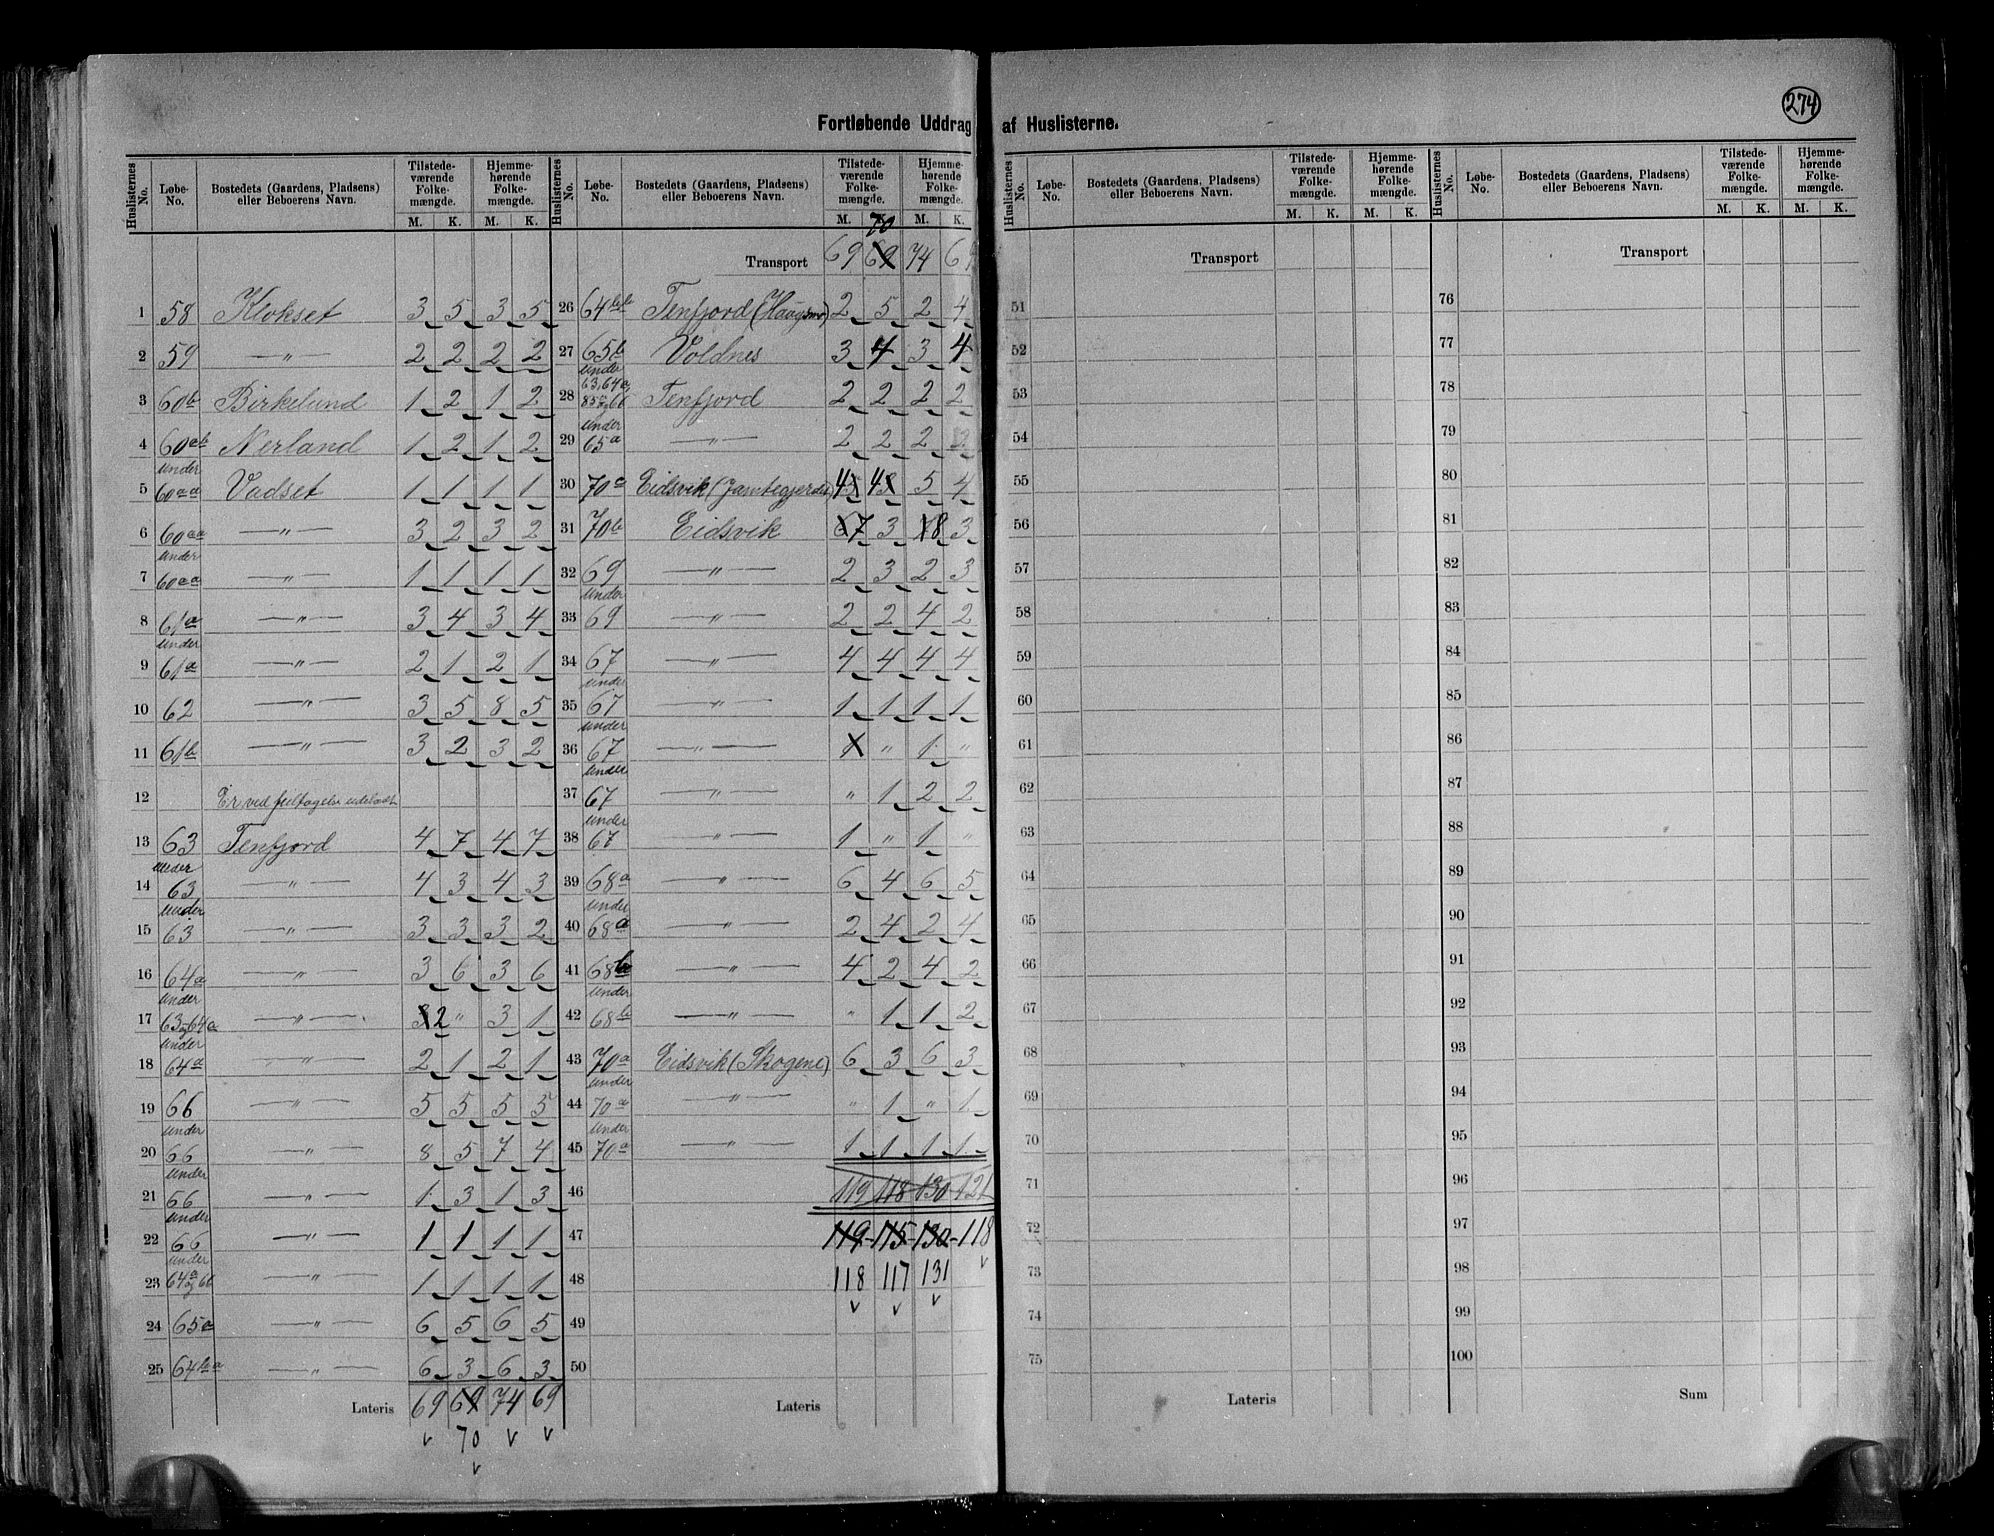 274
Fortløbende Uddrag af Huslisterne.
Huslisternes No. Løbe-No. Bostedets (Gaardens, Pladsens) eller Beboerens Navn. Tilstede-værende Folke-mængde. M. K. Hjemme-hørende Folke-mængde. M. K.
1 58 Klokset 3 5 3 5
2 59 — " — 2 2 2 2
3 60b Birkelund 1 2 1 2
4 60ab Nerland 1 2 1 2
5 under 60aa Vadset 1 1 1 1
6 60aa — " — 3 2 3 2
7 under 60aa — " — 1 1 1 1
8 61a — " — 3 4 3 4
9 under 61a — " — 2 1 2 1
10 62 — " — 3 5 8 5
11 61b — " — 3 2 3 2
12 Er ved feiltagelse udeladt
13 63 Tenfjord 4 7 4 7
14 under 63 — " — 4 3 4 3
15 under 63 — " — 3 3 3 2
16 64a — " — 3 6 3 6
17 under 63 og 64a — " — 2 " 3 1
18 under 64a — " — 2 1 2 1
19 66 — " — 5 5 5 5
20 under 66 — " — 8 5 7 4
21 under 66 — " — 1 3 1 3
22 under 66 — " — 1 1 1 1
23 under 64a og 66 — " — 1 1 1 1
24 65a — " — 6 5 6 5
25 64ba — " — 6 3 6 3
Lateris 69 69 74 69
70
Huslisternes No. Løbe-No. Bostedets (Gaardens, Pladsens) eller Beboerens Navn. Tilstede-værende Folke-mængde. M. K. Hjemme-hørende Folke-mængde. M. K.
70
Transport 69 69 74 69
26 64bb Tenfjord 2 5 2 4
27 65b Voldnes 3 4 3 4
28 under 63, 64a, og 66 Tenfjord 2 2 2 2
29 under 65a — " — 2 2 2 2
30 70a Eidsvik (Jamtegjerdet) 4 4 5 4
31 70b Eidsvik 7 3 8 3
32 69 — " — 2 3 2 3
33 under 69 — " — 2 2 4 2
34 67 — " — 4 4 4 4
35 under 67 — " — 1 1 1 1
36 under 67 — " — " 1 "
37 under 67 — " — " 1 2 2
38 under 67 — " — 1 " 1 "
39 68a — " — 6 4 6 5
40 under 68a — " — 2 4 2 4
41 68b — " — 4 2 4 2
42 under 68b — " — " 1 1 2
43 70a Eidsvik (Skogene) 6 3 6 3
44 under 70a — " — " 1 " 1
45 under 70a — " — 1 1 1 1
46 119 118 130 121
47 119 - 115 - 130 - 118
48 118 117 131
49
50
Lateris
Huslisternes No. Løbe-No. Bostedets (Gaardens, Pladsens) eller Beboerens Navn. Tilstede-værende Folke-mængde. M. K. Hjemme-hørende Folke-mængde. M. K.
Transport
51
52
53
54
55
56
57
58
59
60
61
62
63
64
65
66
67
68
69
70
71
72
73
74
75
Lateris
Huslisternes No. Løbe-No. Bostedets (Gaardens, Pladsens) eller Beboerens Navn. Tilstede-værende Folke-mængde. M. K. Hjemme-hørende Folke-mængde. M. K.
Transport
76
77
78
79
80
81
82
83
84
85
86
87
88
89
90
91
92
93
94
95
96
97
98
99
100
Sum